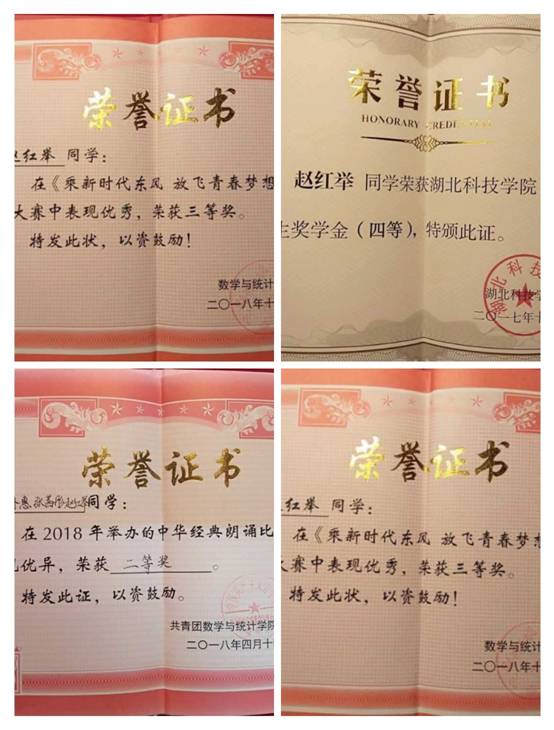 荣誉证书
赵红举 同学：
在《乘新时代东风 放飞青春梦想
大赛中表现优秀，荣获三等奖。
特发此状，以资鼓励！
数学与统计
二〇一八年十
荣誉证书
HONORARY CREDENTIAL
赵红举 同学荣获湖北科技学院
生奖学金（四等），特颁此证。
湖北科技学
湖北科技学
二〇一七年十
荣誉证书
赵红举同学：
在2018年举办的中华经典朗诵比
优异，荣获 二等奖 。
特发此证，以资鼓励。
共青团数学与统计学院
二〇一八年四月十
荣誉证书
红举 同学：
在《乘新时代东风 放飞青春梦想
大赛中表现优秀，荣获三等奖。
特发此状，以资鼓励！
数学与统
二〇一八年十